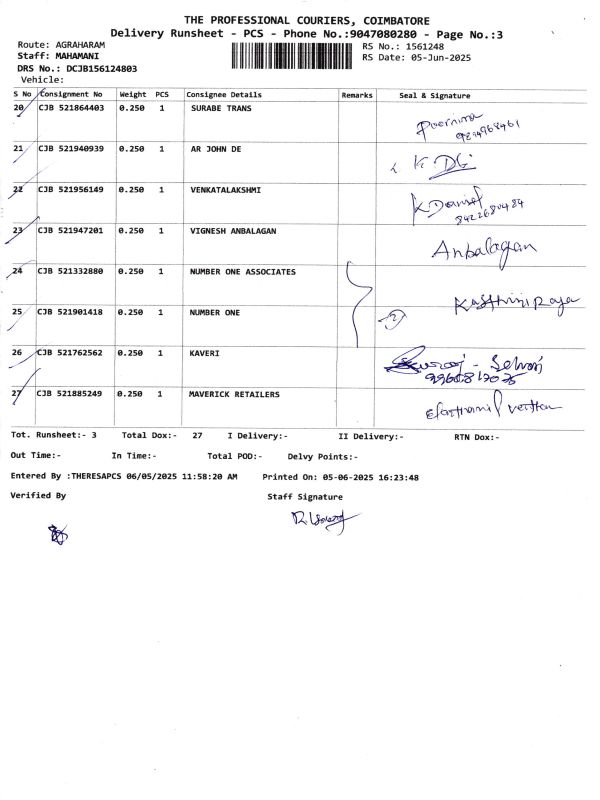 THE PROFESSIONAL COURIERS, COIMBATORE
Delivery Runsheet - PCS - Phone No.:9047080280 - Page No.:3
Route: AGRAHARAM RS No.: 1561248
Staff: MAHAMANI RS Date: 05-Jun-2025
DRS No.: DCJB156124803
Vehicle:
S No Consignment No Weight PCS Consignee Details Remarks Seal & Signature
20 CJB 521864403 0.250 1 SURABE TRANS Poornima
21 CJB 521940939 0.250 1 AR JOHN DE
22 CJB 521956149 0.250 1 VENKATALAKSHMI K Daniel
23 CJB 521947201 0.250 1 VIGNESH ANBALAGAN Anbalagan
24 CJB 521332880 0.250 1 NUMBER ONE ASSOCIATES
25 CJB 521901418 0.250 1 NUMBER ONE
26 CJB 521762562 0.250 1 KAVERI
27 CJB 521885249 0.250 1 MAVERICK RETAILERS
Tot. Runsheet:- 3 Total Dox:- 27 I Delivery:- II Delivery:- RTN Dox:-
Out Time:- In Time:- Total POD:- Delvy Points:-
Entered By :THERESAPCS 06/05/2025 11:58:20 AM Printed On: 05-06-2025 16:23:48
Verified By Staff Signature